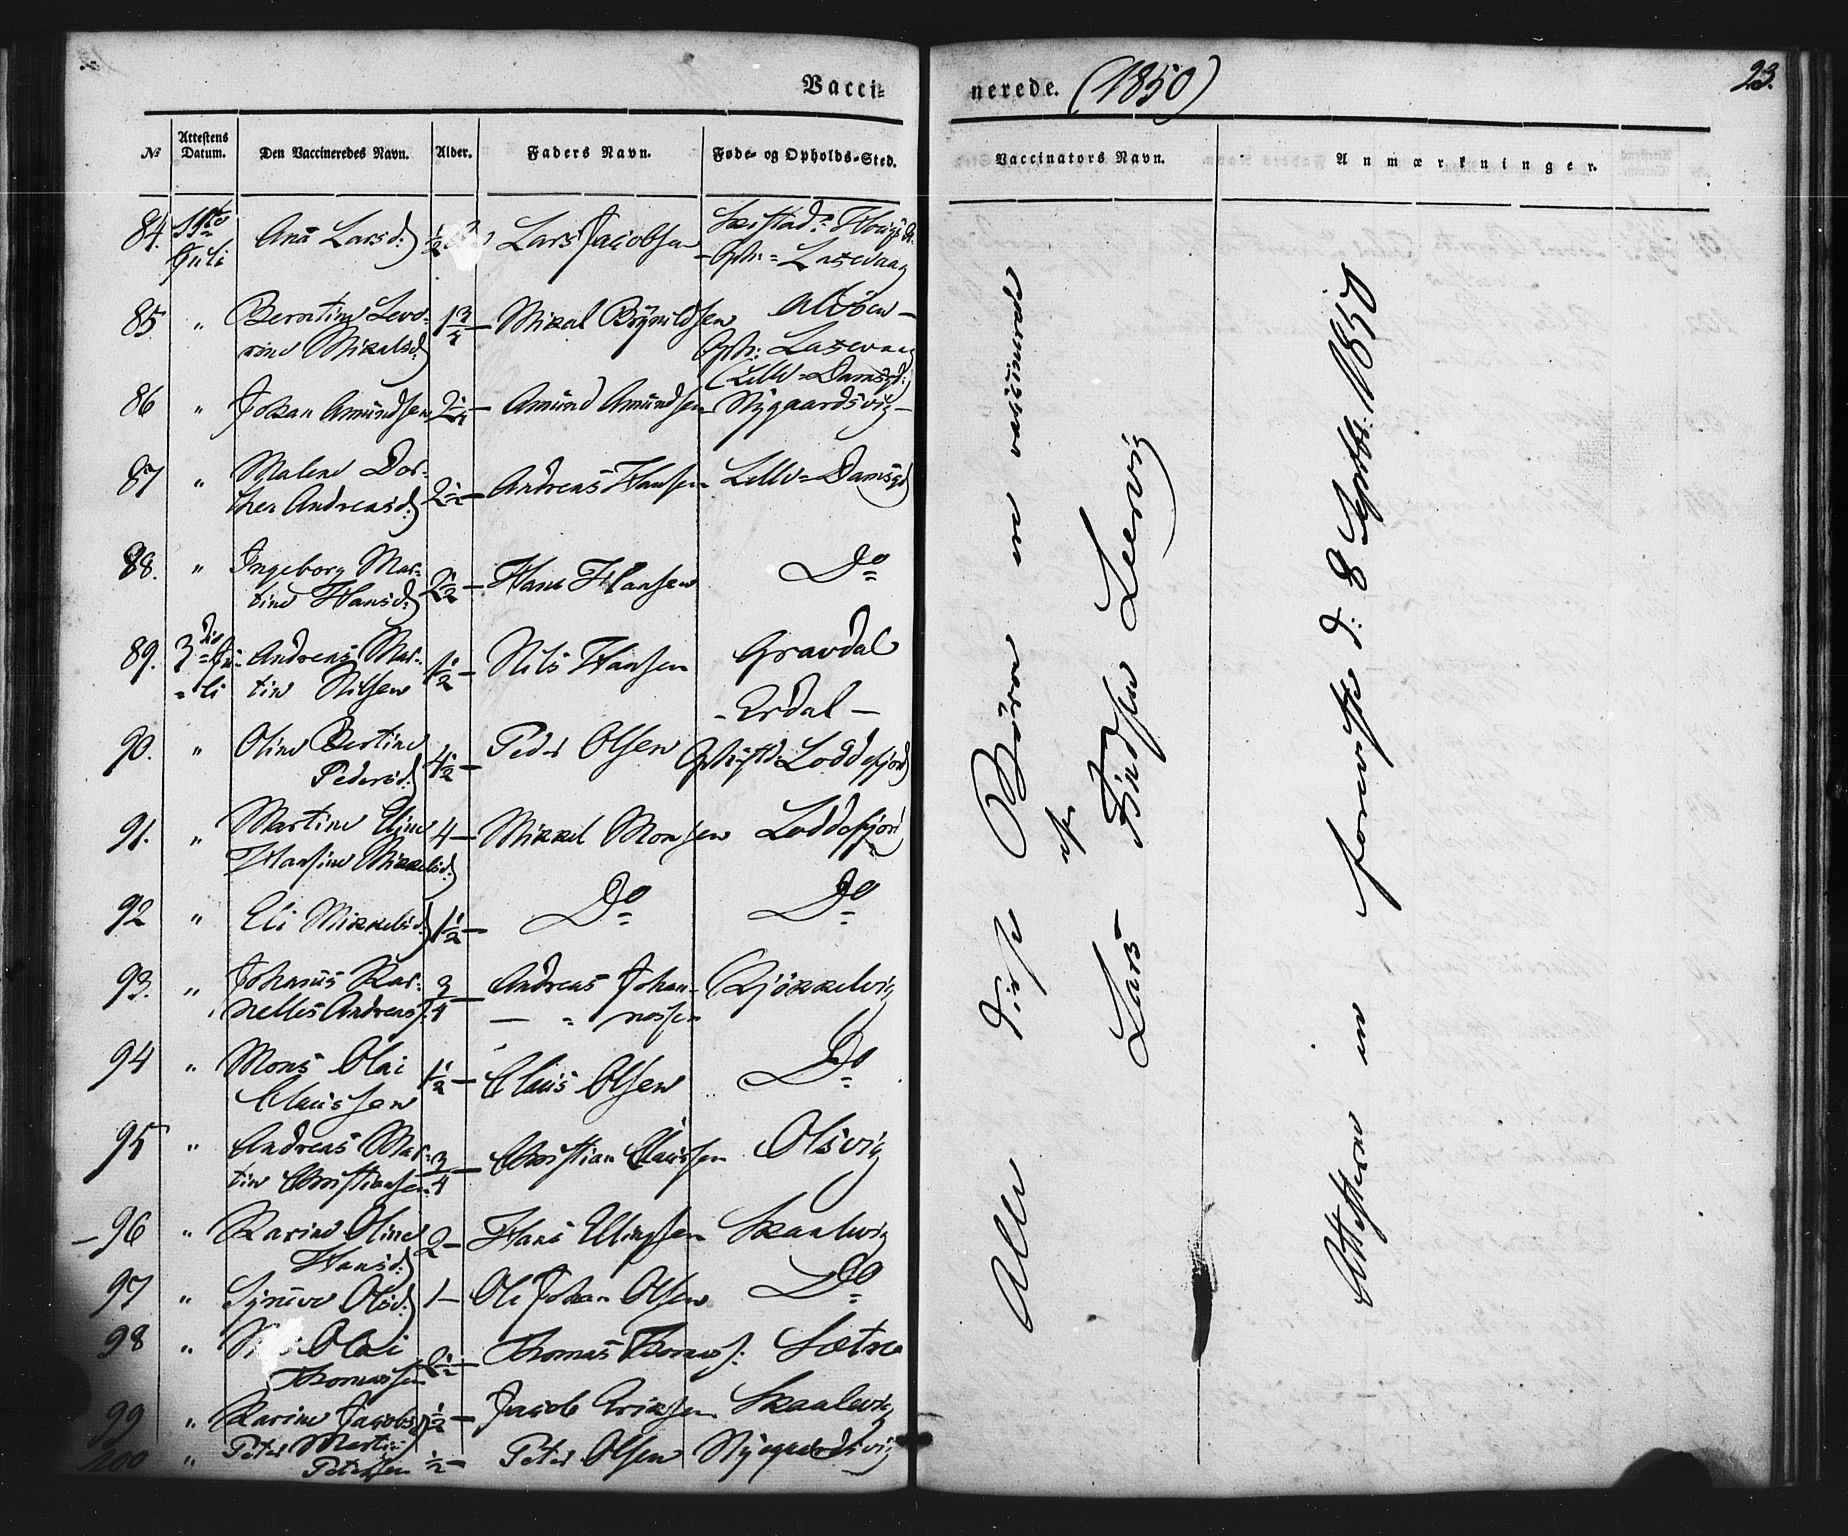 Vacci-
nerede. (1850)
23.
No
Attestens Datum.
Den Vaccineredes Navn.
Alder.
Faders Navn.
Føde- og Opholds-Sted.
Vaccinators Navn.
Anmærkninger.
84. Juli Ana Larsd: ½ Lars Jacobsen
Laxevaag
85. " Berntine Seve-
rine Mikalsd: 1¾ – Mikal Brynildsen Alvøen –
Oph: Laxevaag
(Lille-Damsgd:)
86 " Johan Amundsen 2¼ – Amund Amundsen Nygaardsvig –
87 " Malene Dor-
thea Andreasd: 2½ – Andreas Hansen – Lille-Damsgd
88. " Ingeborg Mar-
tine Hansd: 2½ – Hans Hansen Do
89. 3die Ju-
li Andreas Mar-
tin Nilsen 1½ – Nils Hansen Gravdal
90. " Oline Bertine
Pedersd: 4½ – Peder Olsen – Erdal –
Loddefjord
91. " Martine Eline
Hansine Mikkelsd: 4 – Mikkel Monsen Loddefjord
92 " Eli Mikkelsd: 1½ – Do Do
93. " Johanus Kar-
nelles Andreas: ¾ – Andreas Johan-
– " nessen Kjøkkelvig
94 " Mons Olai
Claussen 1½ – Claus Olsen Do
95 " Andreas Mar-
tin Christiansen ¾ – Christian Claussen Olsvig
– 96 " Karine Oline
Hansd: 2 – Hans Ellingsen Skaalevig
97 " Synneve Olsd: 1 – Ole Johan Olsen Do
98 " Olai
Thomassen ½ – Thomas Thomas: Sætre
99 " Karine Jacobsd: ½ – Jacob Eriksen Skaalevig
100 " Peter Martin
Petersen ½ – Peter Olsen Nygaardsvig
Alle disse Børn ere vaccinerede
af
Lars Knudsen Leervig
Attesterne ere foreviste d: 8 Septbr: 1850